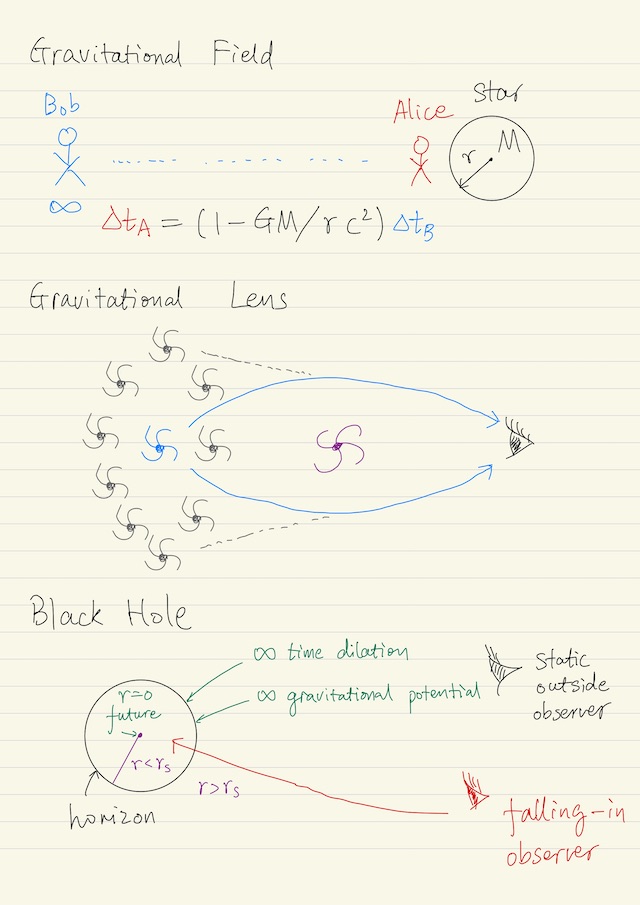 Gravitational Field
Bob
Alice
Star
r
M
∞
ΔtA = (1 - GM/rc²) ΔtB
Gravitational Lens
Black Hole
∞ time dilation
∞ gravitational potential
static
outside
observer
r=0
future
r<rs
r>rs
horizon
falling-in
observer